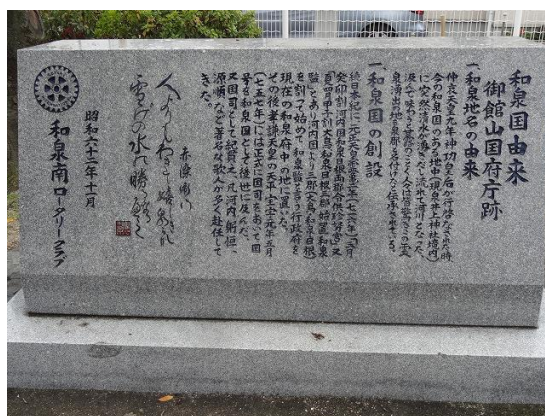 和泉国由来
御館山国府庁跡
一、和泉地名の由来
仲哀天皇九年神功皇后が行啓なされた時
今の和泉国のある地中(現泉井上神社境内)
に突然清水が湧きだし流れて海川となった。
泉湧出の地を泉郡と名付けたと伝承されている。
一、和泉国の創設
続日本紀に元正天皇霊亀二年(七一六年)三月
癸卯割河内国和泉日根両郡令供珍努宮」又
「夏四月甲子割大鳥和泉日根三郡始置和泉
監」とあり河内国より三郡(大鳥和泉日根)
を割って始めて和泉監と言う行政府を
現在の和泉府中の地に置いた。
その後孝謙天皇の天平宝字元年五月
(七五七年)には正式に国司をおいて国
号を和泉国として後世に及んだ。
又国司として紀貫之、凡河内躬恒、
源順など著名な歌人が多く赴任して
きた。
赤染衛門
昭和六十二年十一月
和泉南ロータリークラブ